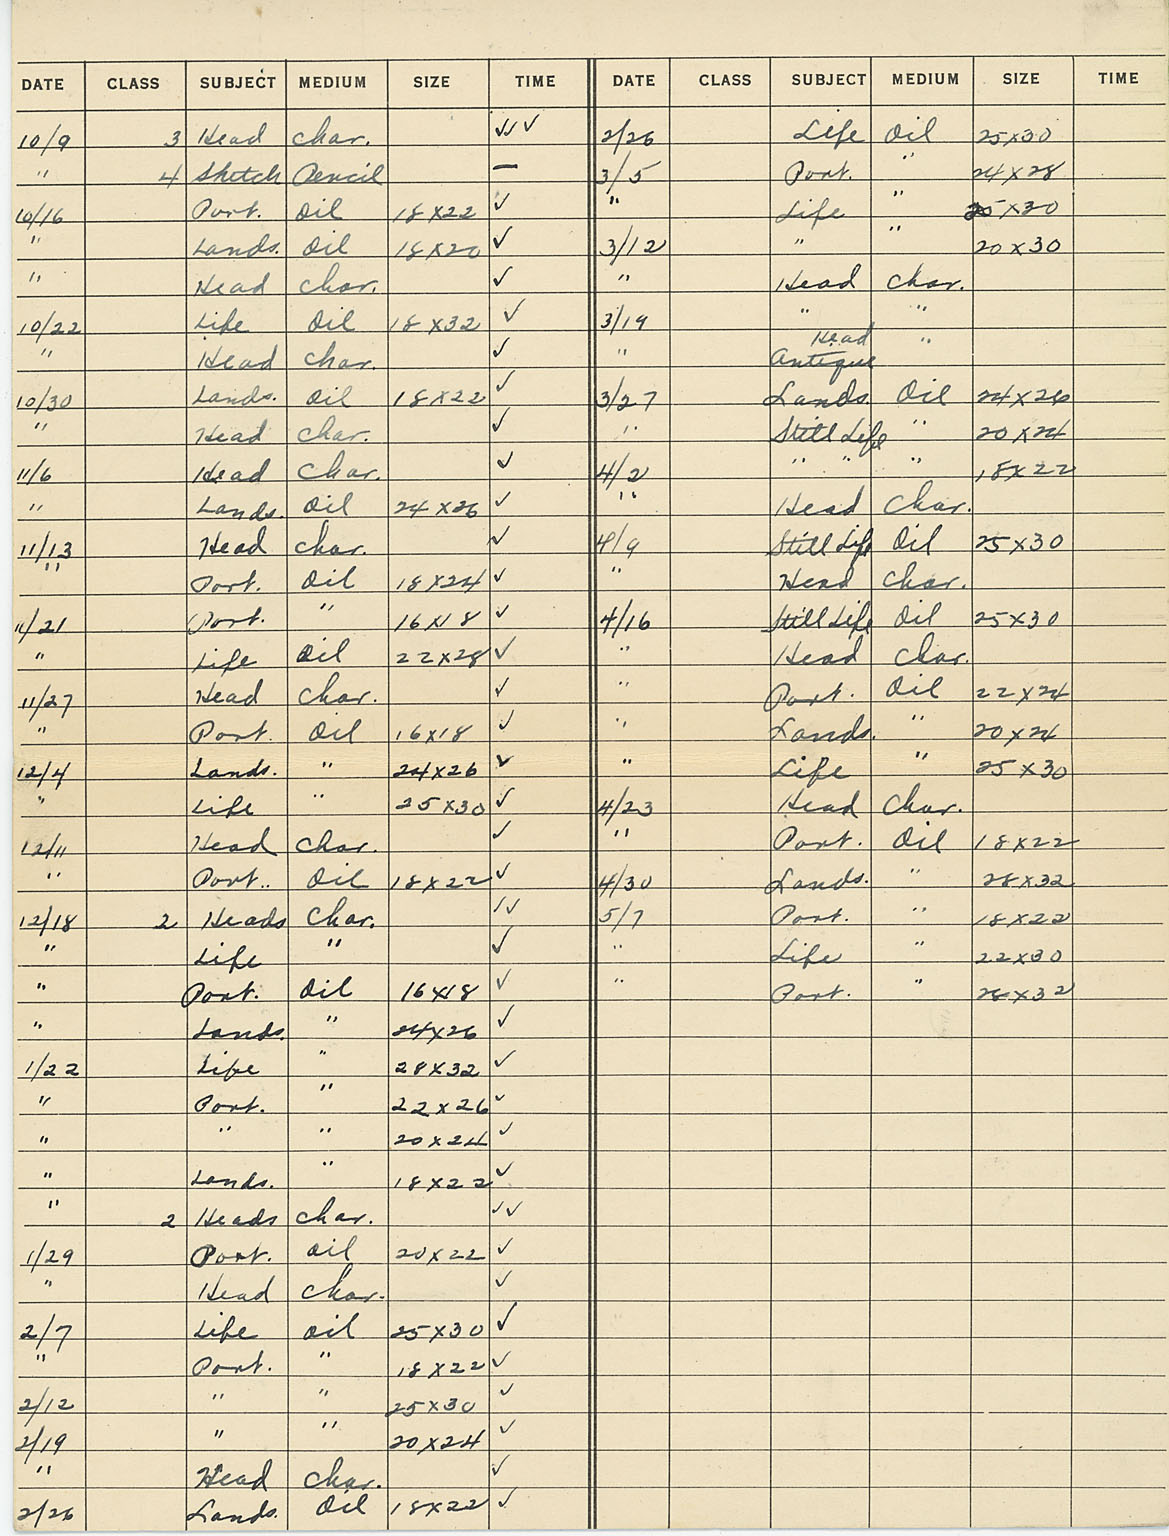 DATE CLASS SUBJECT MEDIUM SIZE TIME
10/9 3 Head Char. ✓✓✓
" 4 Sketch Pencil —
10/16 Port. Oil 18X22 ✓
" Lands. Oil 18X20 ✓
" Head Char. ✓
10/22 Life Oil 18X32 ✓
" Head Char. ✓
10/30 Lands. Oil 18X22 ✓
" Head Char. ✓
11/6 Head Char. ✓
" Lands. Oil 24X26 ✓
11/13 Head Char. ✓
" Port. Oil 18X24 ✓
11/21 Port. " 16X18 ✓
" Life Oil 22X28 ✓
11/27 Head Char. ✓
" Port. Oil 16X18 ✓
12/4 Lands. " 24X26 ✓
" Life " 25X30 ✓
12/11 Head Char. ✓
" Port.. Oil 18X22 ✓
12/18 2 Heads Char. ✓✓
" Life " ✓
" Port. Oil 16X18 ✓
" Lands. " 24X26 ✓
1/22 Life " 28X32 ✓
" Port. " 22X26 ✓
" " " 20X24 ✓
" Lands. " 18X22 ✓
" 2 Heads Char. ✓✓
1/29 Port. Oil 20X22 ✓
" Head Char. ✓
2/7 Life Oil 25X30 ✓
" Port. " 18X22 ✓
2/12 " " 25X30 ✓
2/19 " " 20X24 ✓
" Head Char. ✓
2/26 Lands. Oil 18X22 ✓
DATE CLASS SUBJECT MEDIUM SIZE TIME
2/26 Life Oil 25X30
3/5 Port. " 24X28
" Life " 25X30
3/12 " " 20X30
" Head Char.
3/19 " "
" Head Antique "
3/27 Lands. Oil 24X26
" Still Life " 20X24
4/2 " " " 18X22
" Head Char.
4/9 Still Life Oil 25X30
" Head Char.
4/16 Still Life Oil 25X30
" Head Char.
" Port. Oil 22X24
" Lands. " 20X24
" Life " 25X30
4/23 Head Char.
" Port. Oil 18X22
4/30 Lands. " 28X32
5/7 Port. " 18X22
" Life " 22X30
" Port. " 28X32